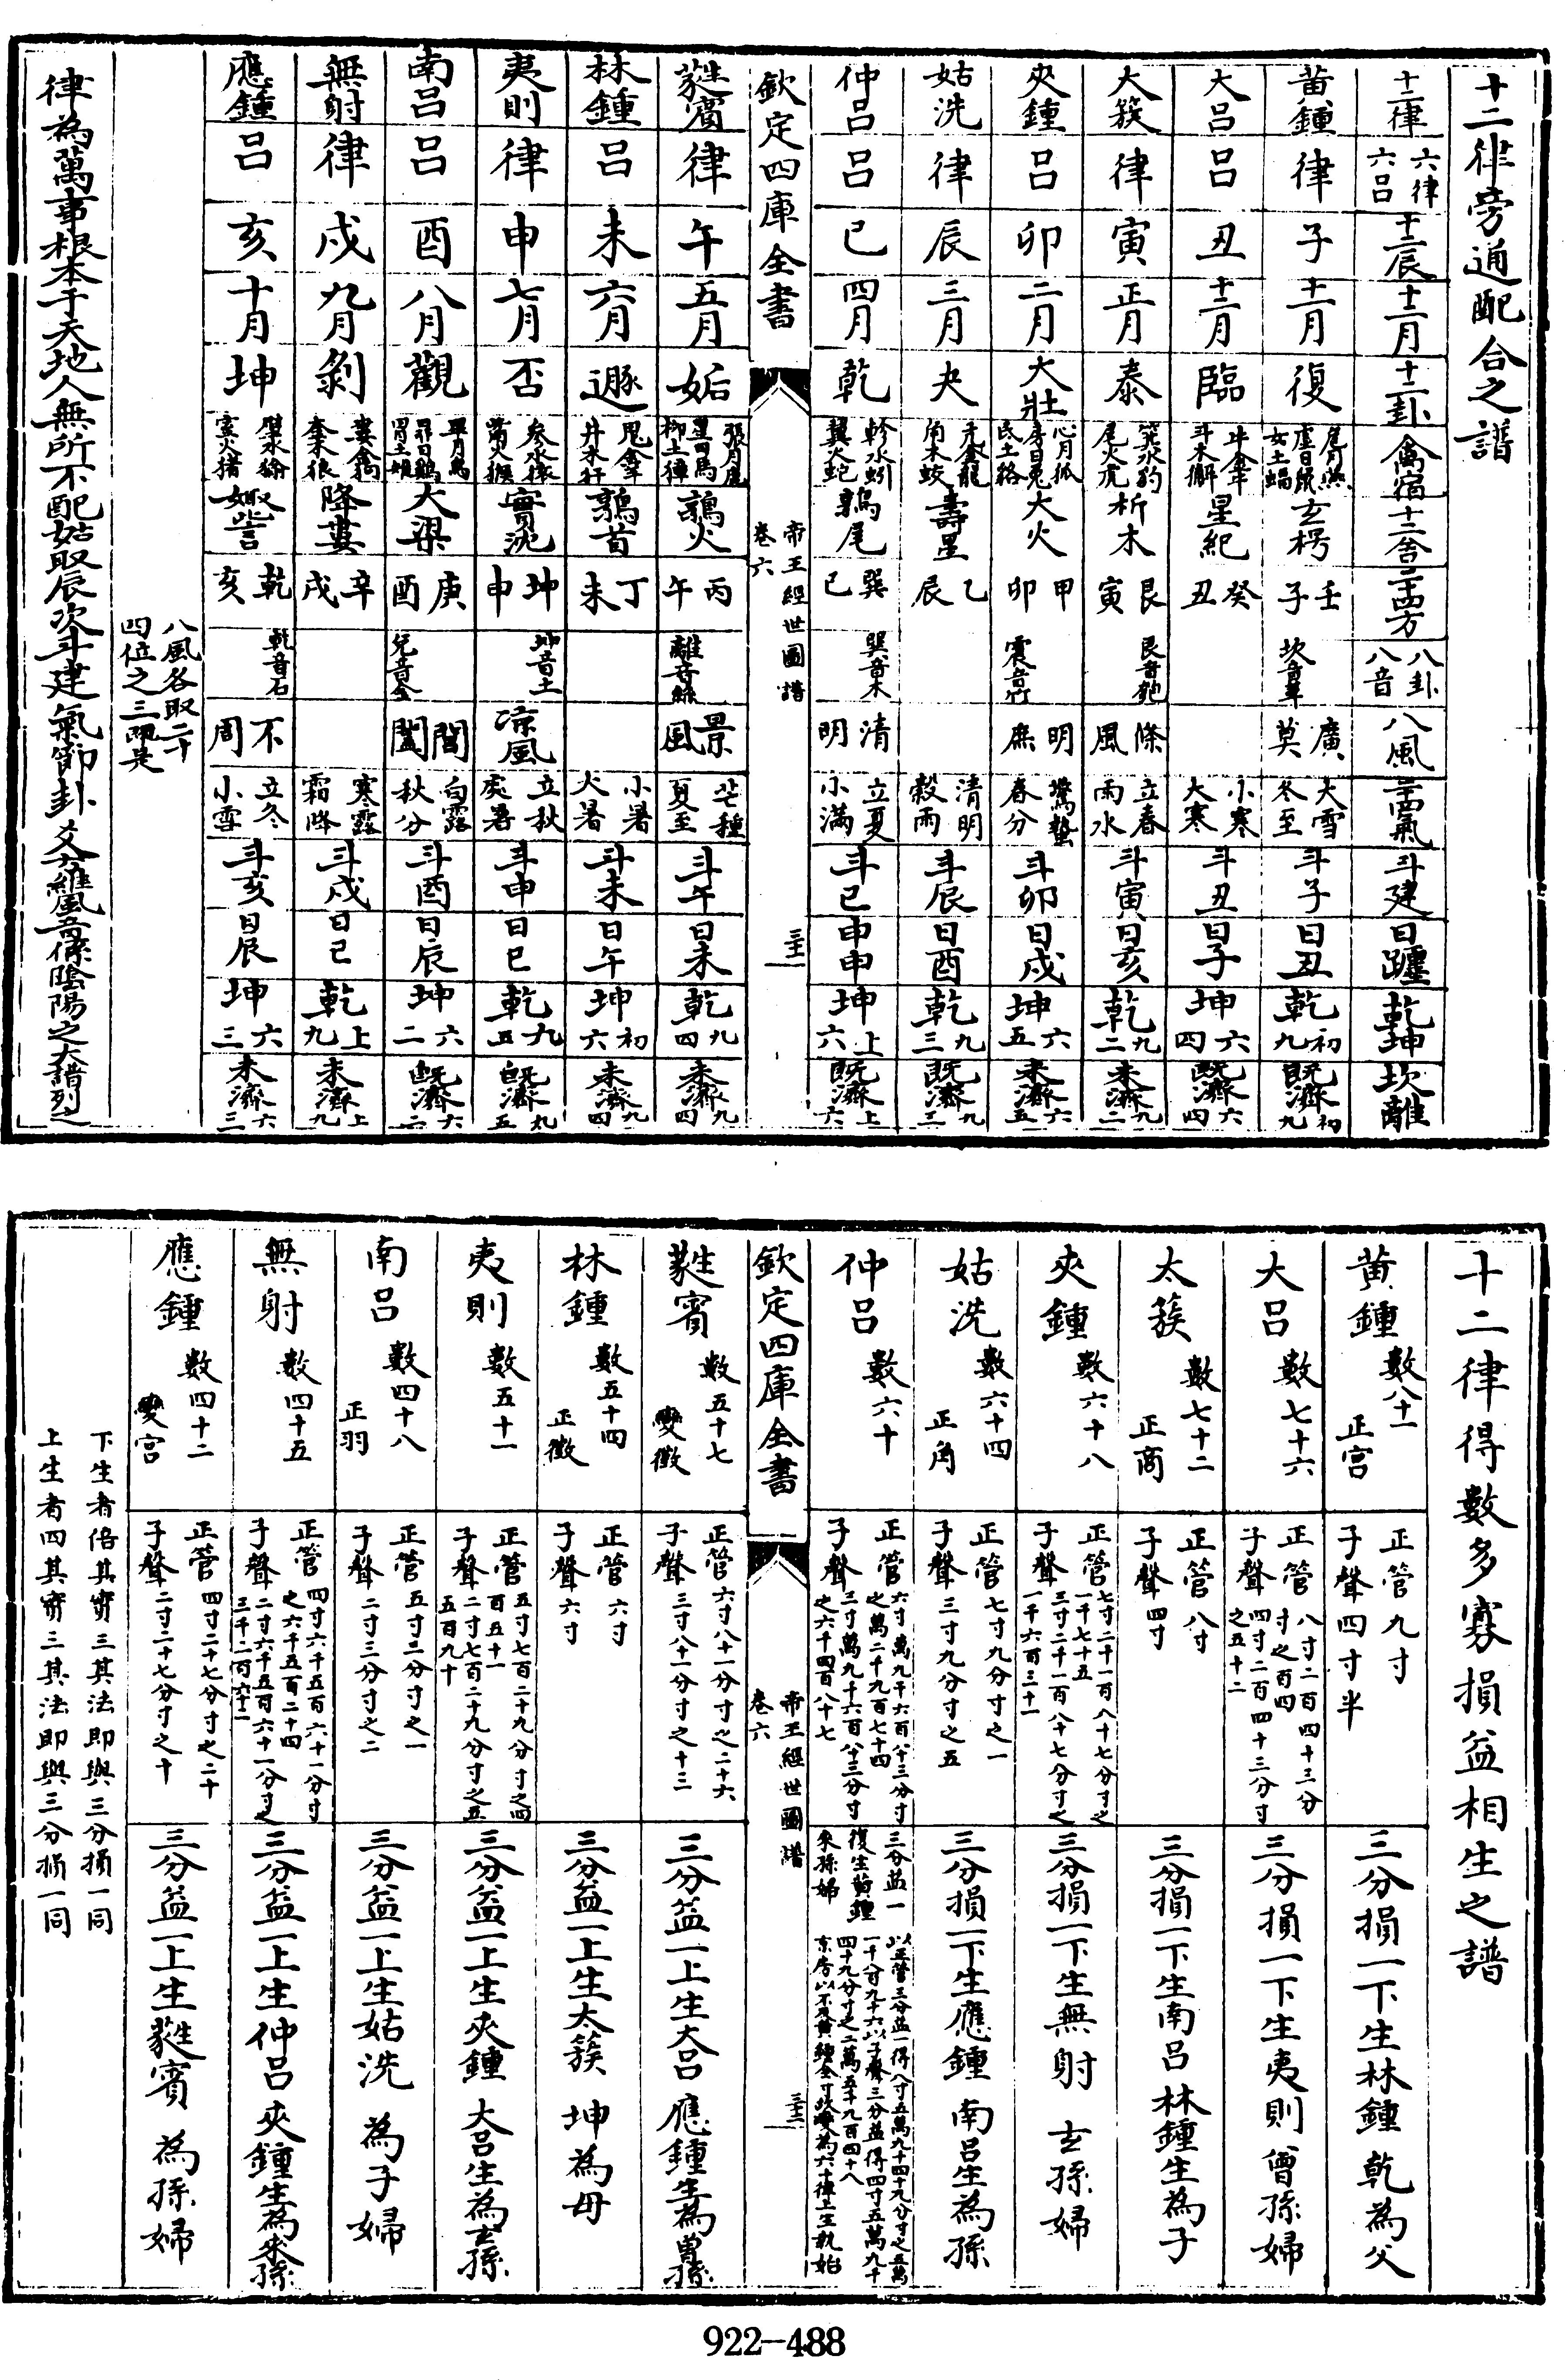 十二律旁通配合之譜
十二律 六律六呂 十二辰 十二月 十二卦 禽宿 十二舍 二十四方 八卦八音 八風 二十四氣 斗建 日躔 乾坤 坎離
黃鍾 律 子 十一月 復 危月燕 虛日鼠 女土蝠 玄枵 壬子 坎音革 廣莫 大雪冬至 斗子 日丑 乾初九 既濟初九
大呂 呂 丑 十二月 臨 牛金牛 斗木獬 星紀 癸丑 小寒大寒 斗丑 日子 坤六四 既濟六四
大簇 律 寅 正月 泰 箕水豹 尾火虎 析木 艮寅 艮音匏 條風 立春雨水 斗寅 日亥 乾九二 未濟九二
夾鍾 呂 卯 二月 大壯 心月狐 房日兎 氐土貉 大火 甲卯 震音竹 明庶 驚蟄春分 斗卯 日戌 坤六五 未濟六五
姑洗 律 辰 三月 夬 亢金龍 角木蛟 壽星 乙辰 清明穀雨 斗辰 日酉 乾九三 既濟九三
仲呂 呂 已 四月 乾 軫水蚓 翼火蛇 鶉尾 巽已 巽音木 清明 立夏小滿 斗已 申申 坤上六 既濟上六
欽定四庫全書
帝王經世圖譜
卷六
三十二
蕤賓 律 午 五月 姤 張月鹿 星日馬 柳土獐 鶉火 丙午 離音絲 景風 芒種夏至 斗午 日未 乾九四 未濟九四
林鍾 呂 未 六月 遯 鬼金羊 井木犴 鶉首 丁未 小暑大暑 斗未 日午 坤初六 未濟九四
夷則 律 申 七月 否 參水猿 觜火猴 實沈 坤申 坤音土 凉風 立秋處暑 斗申 日巳 乾九五 既濟九五
南呂 呂 酉 八月 觀 畢月烏 昴日鷄 胃土雉 大梁 庚酉 兌音金 閶闔 白露秋分 斗酉 日辰 坤六二 既濟六二
無射 律 戌 九月 剝 婁金狗 奎木狼 降婁 辛戌 寒露霜降 斗戌 日已 乾上九 未濟上九
應鍾 呂 亥 十月 坤 壁水㺄 室火猪 娵訾 乾亥 乾音石 不周 立冬小雪 斗亥 日辰 坤六三 未濟六三
八風各取二十
四位之三
律為萬事根本于天地人無所不配姑取辰次斗建氣節卦爻方維風音係陰陽之大譜列之
十二律得數多寡損益相生之譜
黃鍾 數八十一 正宮 正管九寸 子聲四寸半 三分損一下生林鍾 乾為父
大呂 數七十六 正管八寸二百四十三分寸之百四 子聲四寸二百四十三分寸之五十二 三分損一下生夷則 曾孫婦
太簇 數七十二 正商 正管八寸 子聲四寸 三分損一下生南呂 林鍾生為子
夾鍾 數六十八 正管七寸二千一百八十七分寸之一千七十五 子聲三寸二千一百八十七分寸之一千六百三十一 三分損一下生無射 玄孫婦
姑洗 數六十四 正角 正管七寸九分寸之一 子聲三寸九分寸之五 三分損一下生應鍾 南呂生為孫
仲呂 數六十 正管六寸萬九千六百八十三分寸之萬二千九百七十四 子聲三寸萬九千六百八十三分寸之六千四百八十七 三分益一復生黃鍾來孫婦 以正管三分益一得八寸五萬九千四十九分寸之五萬一千八百九十六以子聲三分益得四寸五萬九千四十九分寸之二萬五千九百四十八京房以不及黃鍾全寸故變為六十律上生執始
欽定四庫全書
帝王經世圖譜
卷六
三十三
蕤賓 數五十七 變徵 正管六寸八十一分寸之二十六 子聲三寸八十一分寸之十三 三分益一上生大呂 應鍾生為曾孫
林鍾 數五十四 正徵 正管六寸 子聲六寸 三分益一上生太簇 坤為母
夷則 數五十一 正管五寸七百二十九分寸之四百五十一 子聲二寸七百二十九分寸之五百九十 三分益一上生夾鍾 大呂生為玄孫
南呂 數四十八 正羽 正管五寸三分寸之一 子聲二寸三分寸之二 三分益一上生姑洗 為子婦
無射 數四十五 正管四寸六千五百六十一分寸之六千五百二十四 子聲二寸六千五百六十一分寸之三千二百六十二 三分益一上生仲呂 夾鍾生為來孫
應鍾 數四十二 變宮 正管四寸二十七分寸之二十 子聲二寸二十七分寸之十 三分益一上生蕤賓 為孫婦
下生者倍其實三其法即與三分損一同
上生者四其實三其法即與三分損一同
922-488